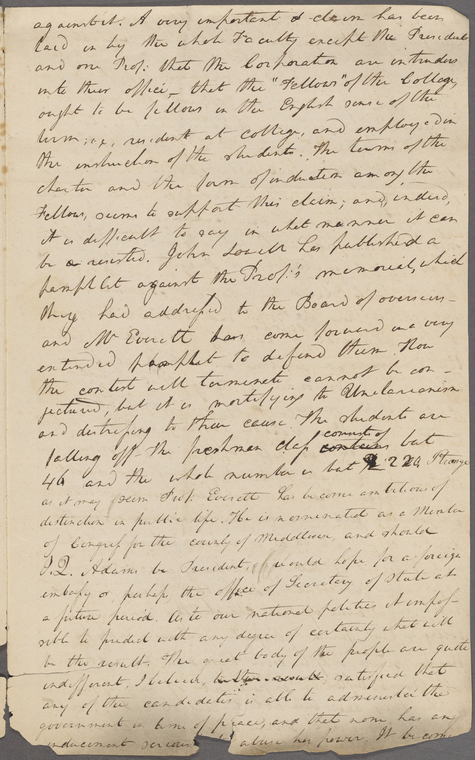 against it. A very important claim has been
laid in by the whole Faculty except the President
and one Prof: that the Corporation are intruders
into their office – that the "Fellows" of the College,
ought to be fellows in the English sense of the
term; i.e., resident at college, and employed in
the instruction of the students. The terms of the
charter and the form of induction among the
Fellows, seems to support this claim; and, indeed,
it is difficult to say in what manner it can
be resisted. John Lowell has published a
pamphlet against the Prof:'s memorial, which
they had addressed to the Board of overseers –
and Mr Everett has come forward in a very
extended pamphlet to defend them. How
the contest will terminate cannot be con-
jectured, but it is mortifying to Unitarianism
and distressing to their cause. The students are
falling off. the freshman class consists of but
40 and the whole number is but 220. Strange
as it may seem Prof. Everett has become ambitious of
distinction in public life. He is nominated as a Member
of Congress for the county of Middlesex, and should
J. Q. Adams be President, would hope for a foreign
embassy or, perhaps the office of Secretary of State at
a future period. As to our national politics it impos-
sible to predict with any degree of certainty what will
be the result. The great body of the people are quite
indifferent, I believe, satisfied that
any of the candidates is able to administer the
government in time of peace, and that none has any
inducement abuse his power. It